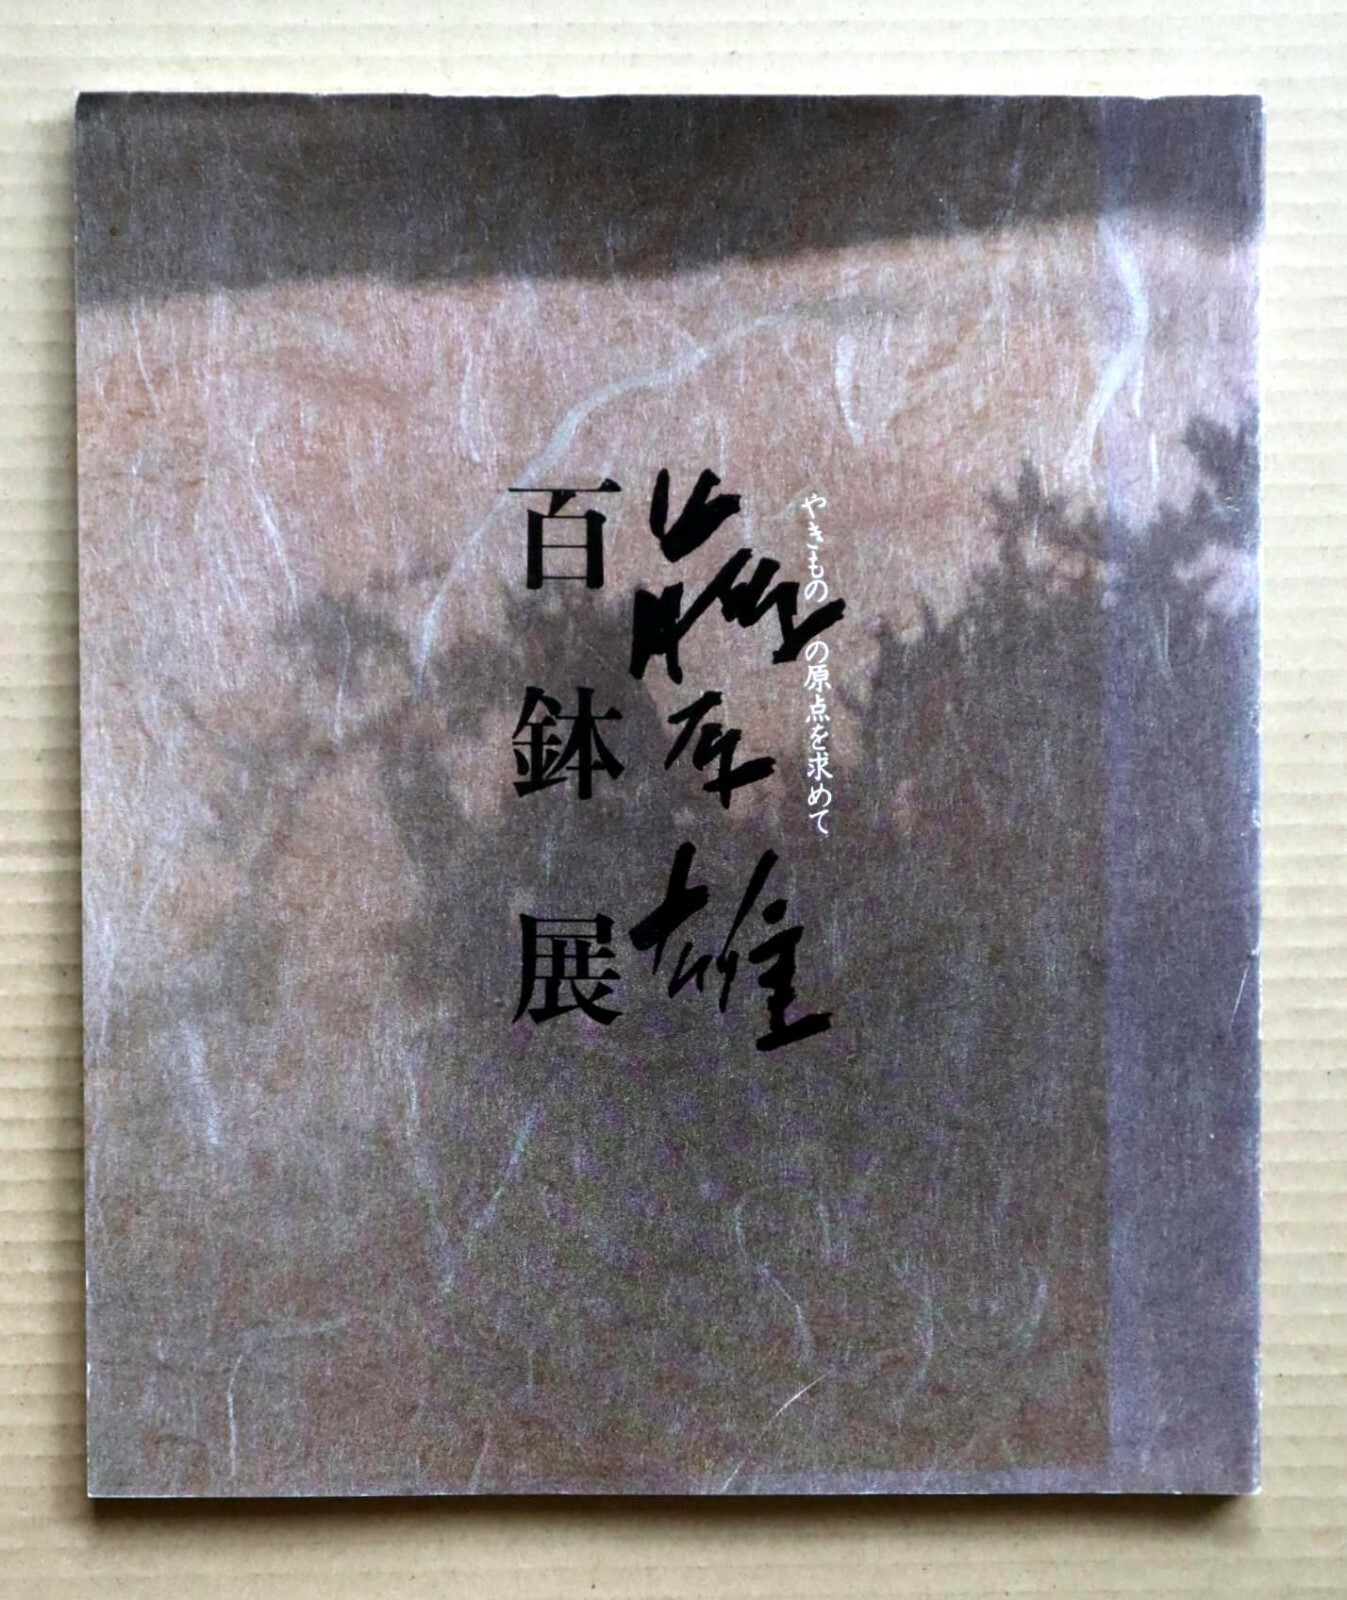 やきものの原点を求めて
雄
百鉢展